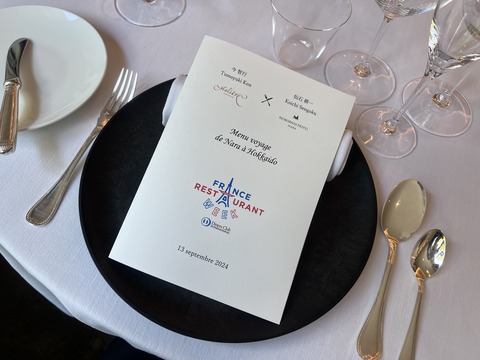 今 智行
Tomoyuki Kon
Héliotrope
×
Koichi Sengoku
NARA
Menu voyage
de Nara à Hokkaido
FRANCE
RESTAURANT
WEEK
Diners Club
INTERNATIONAL
13 septembre 2024